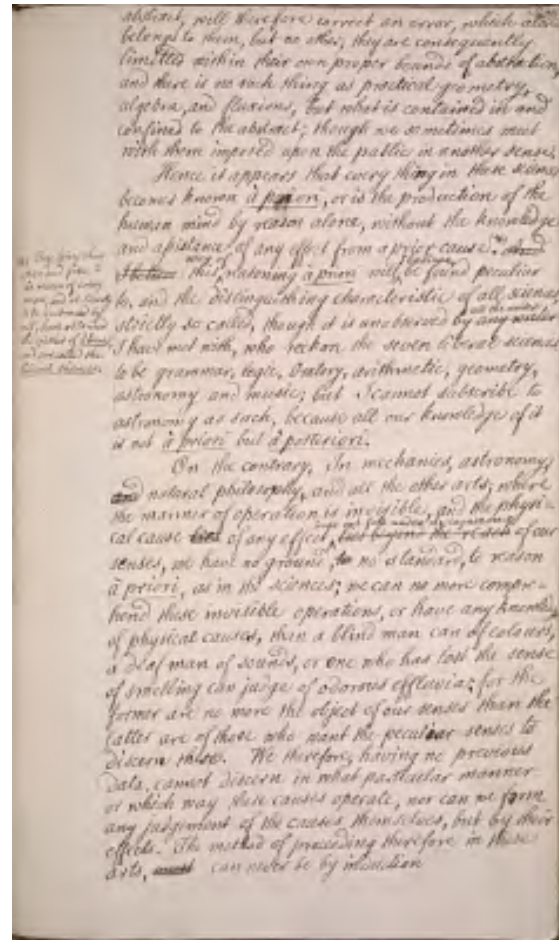 abstract, will therefore correct an error, which alone
belongs to them, but no other; they are consequently
limitted within their own proper bounds of abstraction,
and there is no such thing as practical geometry,
algebra, and fluxions, but what is contained in and
confined to the abstract; though we sometimes meet
with them imposed upon the public in another sense.
Hence it appears that every thing in these sciences
becomes known à priori, or is the production of the
human mind by reason alone, without the knowledge
and assistance of any effect from a prior cause.
way of
this reasoning a priori will be found peculiar
to, and the distinguishing characteristic of all sciences
strictly so called, though it is unobserved by any writer
I have met with, who reckon the seven liberal sciences
to be grammar, logic, Oratory, arithmetic, geometry,
astronomy and music; but I cannot subscribe to
astronomy as such, because all our knowledge of it
is not à priori but à posteriori.
On the contrary, In mechanics, astronomy,
and natural philosophy, and all the other arts; where
the manner of operation is invisible, and the physi-
cal cause of any effect, but beyond the reach of our
senses, we have no ground, no standard, to reason
à priori, as in the sciences; we can no more compre-
hend these invisible operations, or have any knowledge
of physical causes, than a blind man can of colours,
a deaf man of sounds, or one who has lost the sense
of smelling can judge of odorous effluvia; for the
former are no more the object of our senses than the
latter are of those who want the peculiar senses to
discern these. We therefore, having no previous
data, cannot discern in what particular manner
or which way these causes operate, nor can we form
any judgement of the causes themselves, but by their
effects. The method of proceeding therefore in these
arts, can never be by intuition